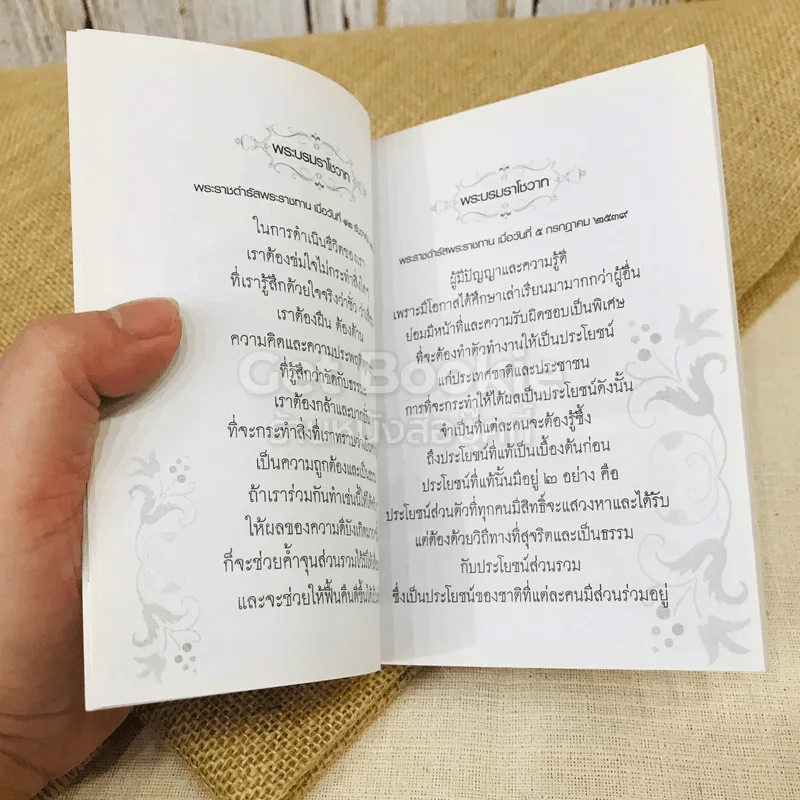 พระบรมราโชวาท
พระราชดำรัสพระราชทาน เมื่อวันที่ ๑๒
ในการดำเนินชีวิตของเรา
เราต้องข่มใจไม่กระทำสิ่งใดๆ
ที่เรารู้สึกด้วยใจจริงว่าชั่ว
เราต้องฝืน ต้องต้าน
ความคิดและความประพฤติ
ที่รู้สึกว่าขัดกับธรรม
เราต้องกล้าและบากบั่น
ที่จะกระทำสิ่งที่เราทราบว่า
เป็นความถูกต้องและเป็น
ถ้าเราร่วมกันทำเช่นนี้ได้
ให้ผลของความดีบังเกิด
ก็จะช่วยค้ำจุนส่วนรวมไว้
และจะช่วยให้ฟื้นคืนดีขึ้นได้
พระบรมราโชวาท
พระราชดำรัสพระราชทาน เมื่อวันที่ ๕ กรกฎาคม ๒๕๓๙
ผู้มีปัญญาและความรู้ดี
เพราะมีโอกาสได้ศึกษาเล่าเรียนมามากกว่าผู้อื่น
ย่อมมีหน้าที่และความรับผิดชอบเป็นพิเศษ
ที่จะต้องทำตัวทำงานให้เป็นประโยชน์
แก่ประเทศชาติและประชาชน
การที่จะกระทำให้ได้ผลเป็นประโยชน์ดังนั้น
จำเป็นที่แต่ละคนจะต้องรู้ซึ้ง
ถึงประโยชน์ที่แท้เป็นเบื้องต้นก่อน
ประโยชน์ที่แท้นั้นมีอยู่ ๒ อย่าง คือ
ประโยชน์ส่วนตัวที่ทุกคนมีสิทธิ์จะแสวงหาและได้รับ
แต่ต้องด้วยวิถีทางที่สุจริตและเป็นธรรม
กับประโยชน์ส่วนรวม
ซึ่งเป็นประโยชน์ของชาติที่แต่ละคนมีส่วนร่วมอยู่